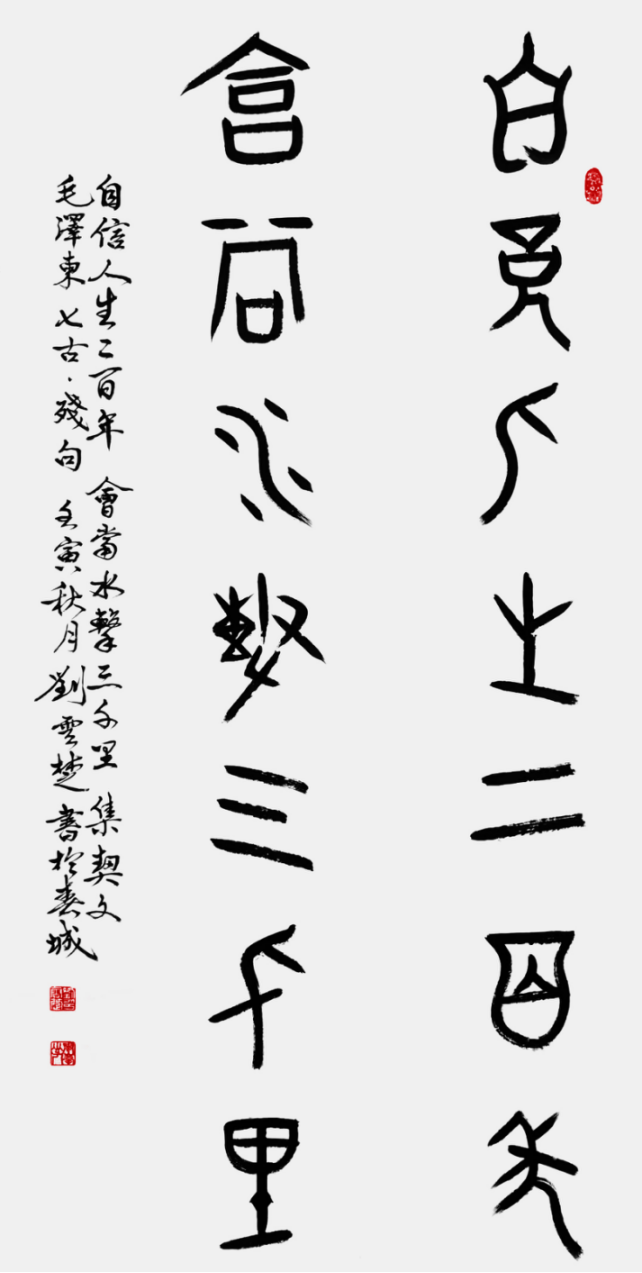 自信人生二百年
會當水擊三千里
自信人生二百年 會當水擊三千里 集契文
毛澤東七古·殘句 壬寅秋月 劉雲楚書於春城